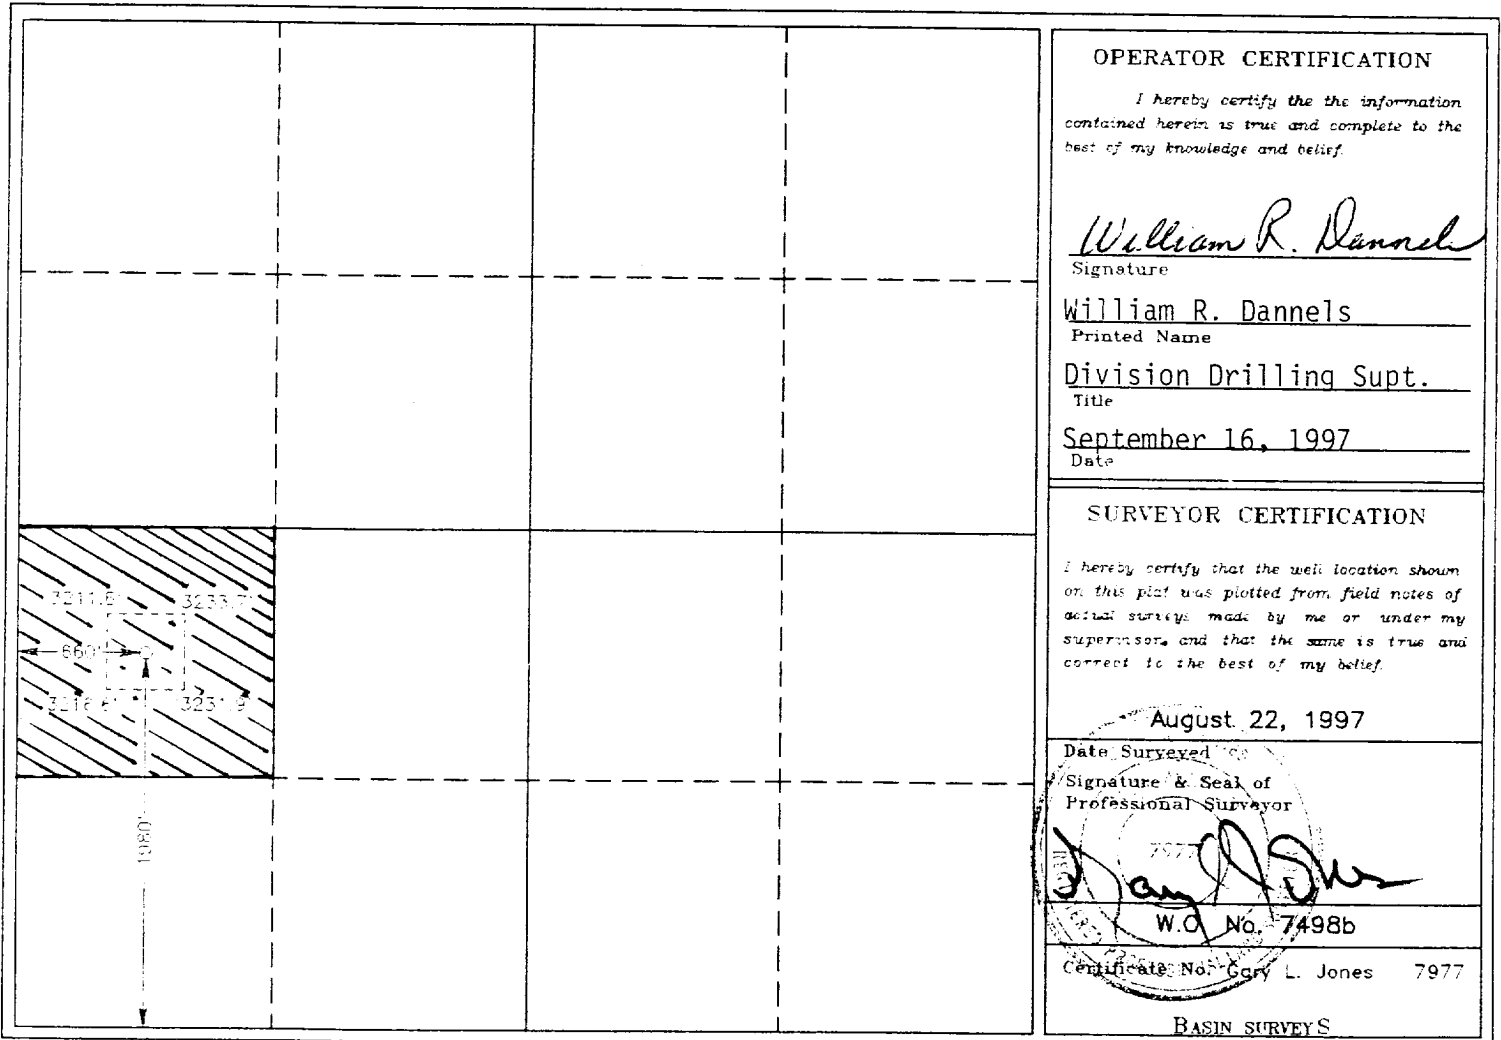 OPERATOR CERTIFICATION
I hereby certify the the information
contained herein is true and complete to the
best of my knowledge and belief.
William R. Dannels
Signature
William R. Dannels
Printed Name
Division Drilling Supt.
Title
September 16, 1997
Date
SURVEYOR CERTIFICATION
I hereby certify that the well location shown
on this plat was plotted from field notes of
actual surveys made by me or under my
supervison, and that the same is true and
correct to the best of my belief.
August 22, 1997
Date Surveyed
Signature & Seal of
Professional Surveyor
7977
Gary L Jones
W.O. No. 7498b
Certificate No. Gary L. Jones 7977
BASIN SURVEYS
3211.8' 3233.7'
660'
3216.6' 3231.9'
1980'